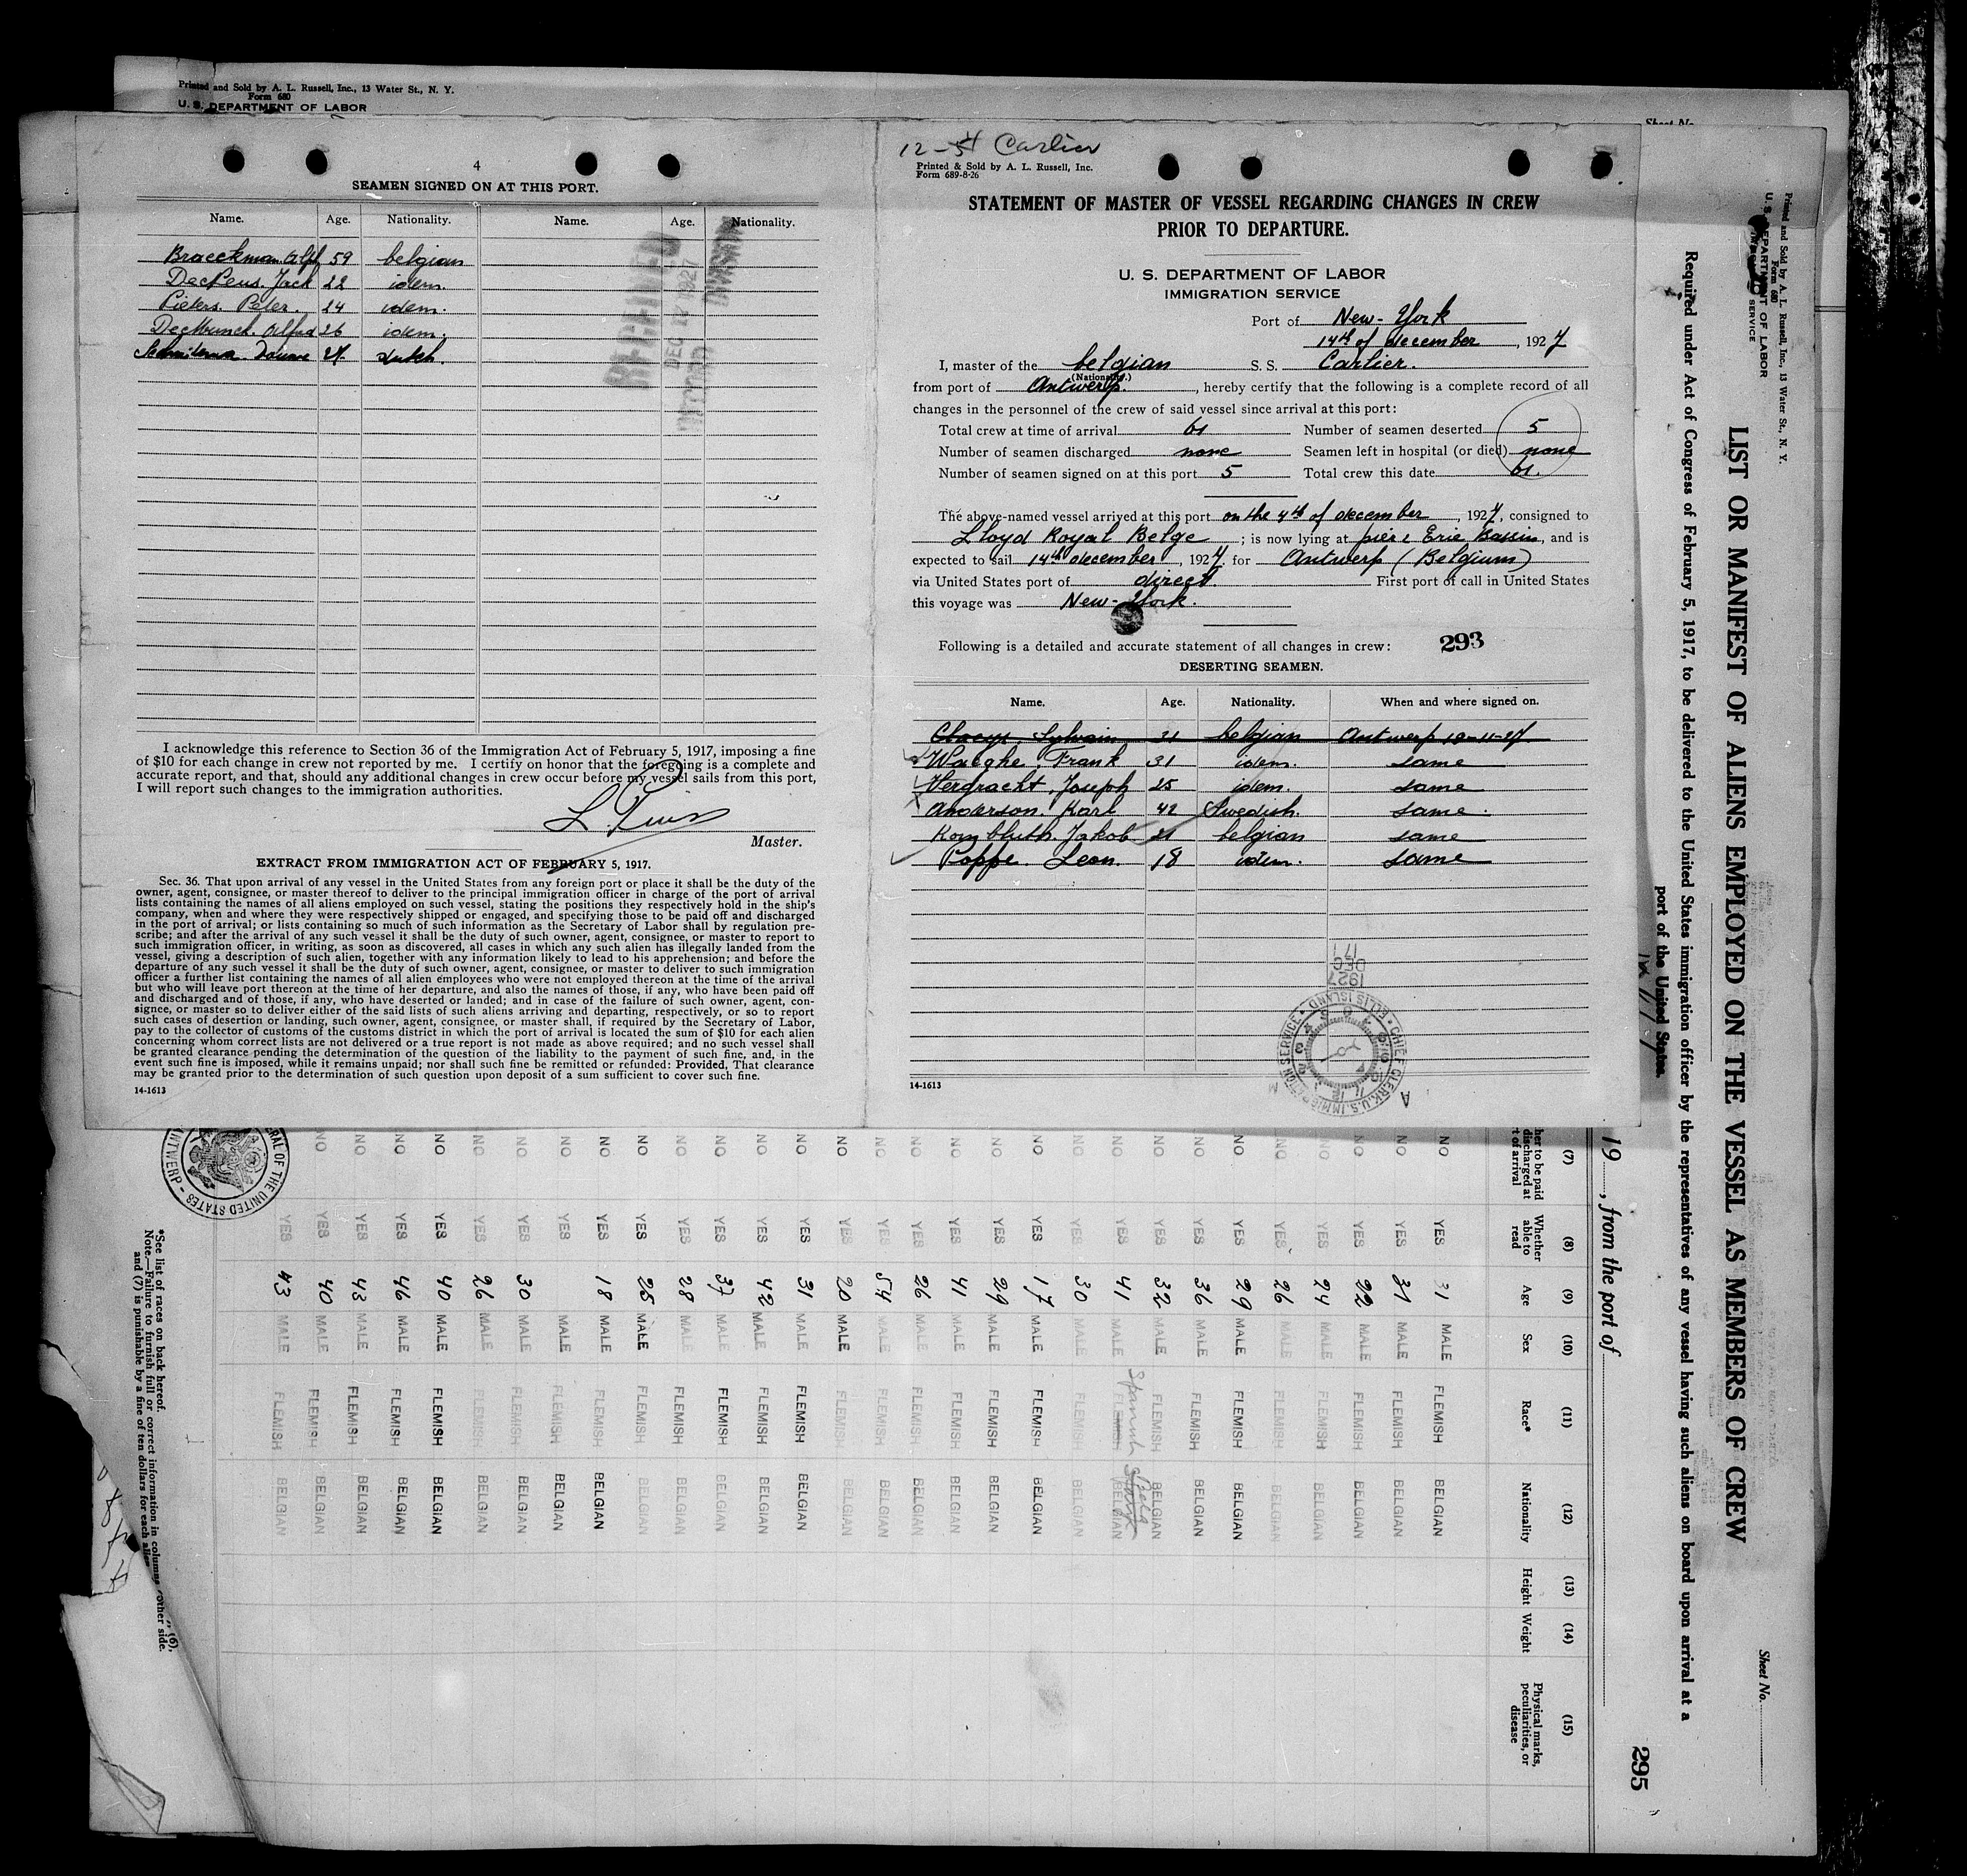 Printed and Sold by A. L. Russell, Inc., 13 Water St., N. Y.
Form 680
U. S. DEPARTMENT OF LABOR
4
SEAMEN SIGNED ON AT THIS PORT.
Name. Age. Nationality. Name. Age. Nationality.
Braeckman Alf 59 belgian
Jack 22 idem.
Pieters. Peter. 24 idem.
Alfred 26 idem.
Douwe dutch.
RECEIVED
DEC 14 1927
I acknowledge this reference to Section 36 of the Immigration Act of February 5, 1917, imposing a fine
of $10 for each change in crew not reported by me. I certify on honor that the foregoing is a complete and
accurate report, and that, should any additional changes in crew occur before my vessel sails from this port,
I will report such changes to the immigration authorities.
Master.
EXTRACT FROM IMMIGRATION ACT OF FEBRUARY 5, 1917.
Sec. 36. That upon arrival of any vessel in the United States from any foreign port or place it shall be the duty of the
owner, agent, consignee, or master thereof to deliver to the principal immigration officer in charge of the port of arrival
lists containing the names of all aliens employed on such vessel, stating the positions they respectively hold in the ship's
company, when and where they were respectively shipped or engaged, and specifying those to be paid off and discharged
in the port of arrival; or lists containing so much of such information as the Secretary of Labor shall by regulation pre-
scribe; and after the arrival of any such vessel it shall be the duty of such owner, agent, consignee, or master to report to
such immigration officer, in writing, as soon as discovered, all cases in which any such alien has illegally landed from the
vessel, giving a description of such alien, together with any information likely to lead to his apprehension; and before the
departure of any such vessel it shall be the duty of such owner, agent, consignee, or master to deliver to such immigration
officer a further list containing the names of all alien employees who were not employed thereon at the time of the arrival
but who will leave port thereon at the time of her departure, and also the names of those, if any, who have been paid off
and discharged and of those, if any, who have deserted or landed; and in case of the failure of such owner, agent, con-
signee, or master so to deliver either of the said lists of such aliens arriving and departing, respectively, or so to report
such cases of desertion or landing, such owner, agent, consignee, or master shall, if required by the Secretary of Labor,
pay to the collector of customs of the customs district in which the port of arrival is located the sum of $10 for each alien
concerning whom correct lists are not delivered or a true report is not made as above required; and no such vessel shall
be granted clearance pending the determination of the question of the liability to the payment of such fine, and, in the
event such fine is imposed, while it remains unpaid; nor shall such fine be remitted or refunded: Provided, That clearance
may be granted prior to the determination of such question upon deposit of a sum sufficient to cover such fine.
14-1613
12-5 Carlier
Printed & Sold by A. L. Russell, Inc.
Form 689-8-26
STATEMENT OF MASTER OF VESSEL REGARDING CHANGES IN CREW
PRIOR TO DEPARTURE.
U. S. DEPARTMENT OF LABOR
IMMIGRATION SERVICE
Port of New-York
14th of december, 1927
I, master of the belgian S. S. Carlier.
(Nationality.)
from port of Antwerp., hereby certify that the following is a complete record of all
changes in the personnel of the crew of said vessel since arrival at this port:
Total crew at time of arrival 61 Number of seamen deserted 5
Number of seamen discharged none Seamen left in hospital (or died) none
Number of seamen signed on at this port 5 Total crew this date 61.
The above-named vessel arrived at this port on the 4th of december, 1927, consigned to
Lloyd Royal Belge; is now lying at pier 1 Erie Bassin, and is
expected to sail 14th december, 1927. for Antwerp (Belgium)
via United States port of direct. First port of call in United States
this voyage was New-York.
Following is a detailed and accurate statement of all changes in crew: 293
DESERTING SEAMEN.
Name. Age. Nationality. When and where signed on.
Sylvain 31 belgian Antwerp 18-11-27
Waeghe. Frank 31 idem. same
Vergracht. Joseph 25 idem. same
Anderson. Karl 42 Swedish. same.
Kornbluth. Jakob 21 belgian same
Poppe. Leon. 18 idem. same
1927 DEC 17
CHIEF CLERK, U.S. IMMIGRATION SERVICE • ELLIS ISLAND •
14-1613
Printed and Sold by A. L. Russell, Inc., 13 Water St., N. Y.
Form 680
U. S. DEPARTMENT OF LABOR
SERVICE
Sheet No.
LIST OR MANIFEST OF ALIENS EMPLOYED ON THE VESSEL AS MEMBERS OF CREW
Required under Act of Congress of February 5, 1917, to be delivered to the United States immigration officer by the representatives of any vessel having such aliens on board upon arrival at a
port of the United States.
295
19, from the port of
(7) (8) (9) (10) (11) (12) (13) (14) (15)
her to be paid discharged at rt of arrival Whether able to read Age Sex Race* Nationality Height Weight Physical marks, peculiarities, or disease
NO YES 31 MALE FLEMISH BELGIAN
NO YES 31 MALE FLEMISH BELGIAN
NO YES 22 MALE FLEMISH BELGIAN
NO YES 24 MALE FLEMISH BELGIAN
NO YES 26 MALE FLEMISH BELGIAN
NO YES 29 MALE FLEMISH BELGIAN
NO YES 36 MALE FLEMISH BELGIAN
NO YES 32 MALE FLEMISH BELGIAN
NO YES 41 MALE FLEMISH Spanish BELGIAN
NO YES 30 MALE FLEMISH BELGIAN
NO YES 17 MALE FLEMISH BELGIAN
NO YES 29 MALE FLEMISH BELGIAN
NO YES 41 MALE FLEMISH BELGIAN
NO YES 26 MALE FLEMISH BELGIAN
NO YES 54 MALE FLEMISH BELGIAN
NO YES 20 MALE FLEMISH BELGIAN
NO YES 31 MALE FLEMISH BELGIAN
NO YES 42 MALE FLEMISH BELGIAN
NO YES 37 MALE FLEMISH BELGIAN
NO YES 28 MALE FLEMISH BELGIAN
NO YES 25 MALE FLEMISH BELGIAN
NO YES 18 MALE FLEMISH BELGIAN
NO YES MALE FLEMISH BELGIAN
NO YES 30 MALE FLEMISH BELGIAN
NO YES 26 MALE FLEMISH BELGIAN
NO YES 40 MALE FLEMISH BELGIAN
NO YES 46 MALE FLEMISH BELGIAN
NO YES 43 MALE FLEMISH BELGIAN
NO YES 40 MALE FLEMISH BELGIAN
YES 43 MALE FLEMISH BELGIAN
*See list of races on back hereof.
Note.—Failure to furnish full or correct information in columns (6),
and (7) is punishable by a fine of ten dollars for each alien other side.